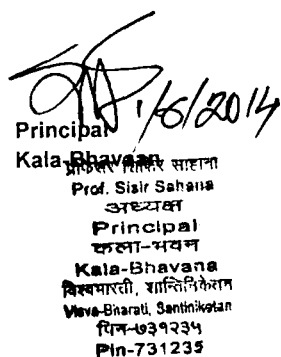 1/6/2014
Principal
Kala-Bhavana
प्रोफेसर शिशिर साहाना
Prof. Sisir Sahana
अध्यक्ष
Principal
कला-भवन
Kala-Bhavana
विश्वभारती, शान्तिनिकेतन
Visva-Bharati, Santiniketan
पिन-७३१२३५
Pin-731235